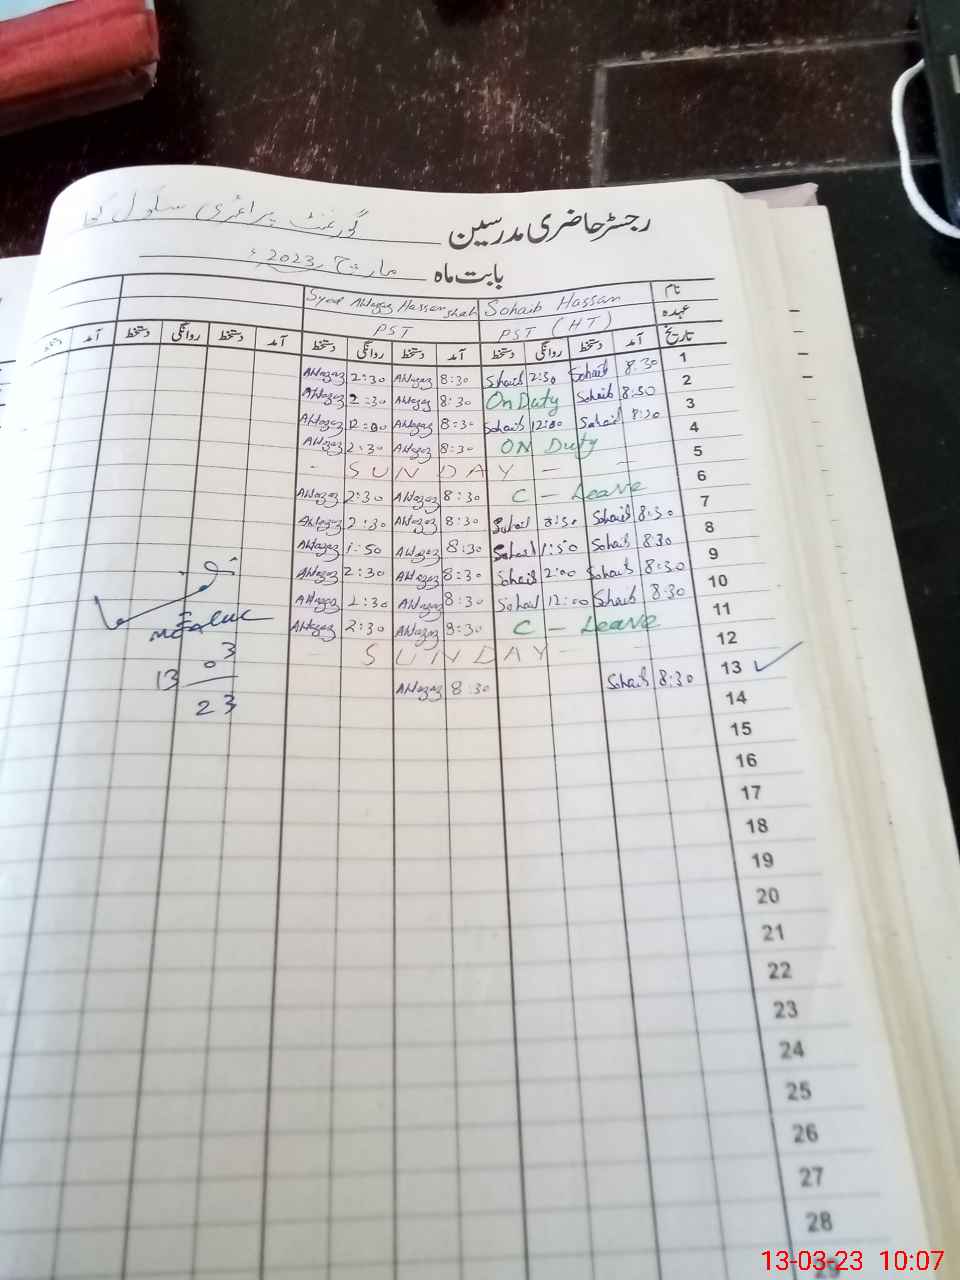 رجسٹر حاضری مدرسین گورنمنٹ پرائمری سکول
بابت ماہ مارچ 2023ء
نام Sohaib Hassan Syed Ahtazaz Hassan Shah
عہدہ PST (HT) PST
تاریخ آمد دستخط روانگی دستخط آمد دستخط روانگی دستخط آمد دستخط روانگی دستخط آمد
1 8:30 Sohaib 2:30 Sohaib 8:30 Ahtazaz 2:30 Ahtazaz
2 8:30 Sohaib On Duty 8:30 Ahtazaz 2:30 Ahtazaz
3 8:30 Sohaib 12:00 Sohaib 8:30 Ahtazaz 12:00 Ahtazaz
4 ON Duty 8:30 Ahtazaz 2:30 Ahtazaz
5 - SUNDAY - -
6 C - Leave 8:30 Ahtazaz 2:30 Ahtazaz
7 8:30 Sohaib Sohaib 8:30 Ahtazaz 2:30 Ahtazaz
8 8:30 Sohaib 1:50 Sohaib 8:30 Ahtazaz 1:50 Ahtazaz
9 8:30 Sohaib 2:00 Sohaib 8:30 Ahtazaz 2:30 Ahtazaz
10 8:30 Sohaib 12:00 Sohaib 8:30 Ahtazaz 2:30 Ahtazaz
11 C - Leave 8:30 Ahtazaz 2:30 Ahtazaz
12 - SUNDAY - -
13 8:30 Sohaib 8:30 Ahtazaz
14
15
16
17
18
19
20
21
22
23
24
25
26
27
28
13 03
23
13-03-23 10:07